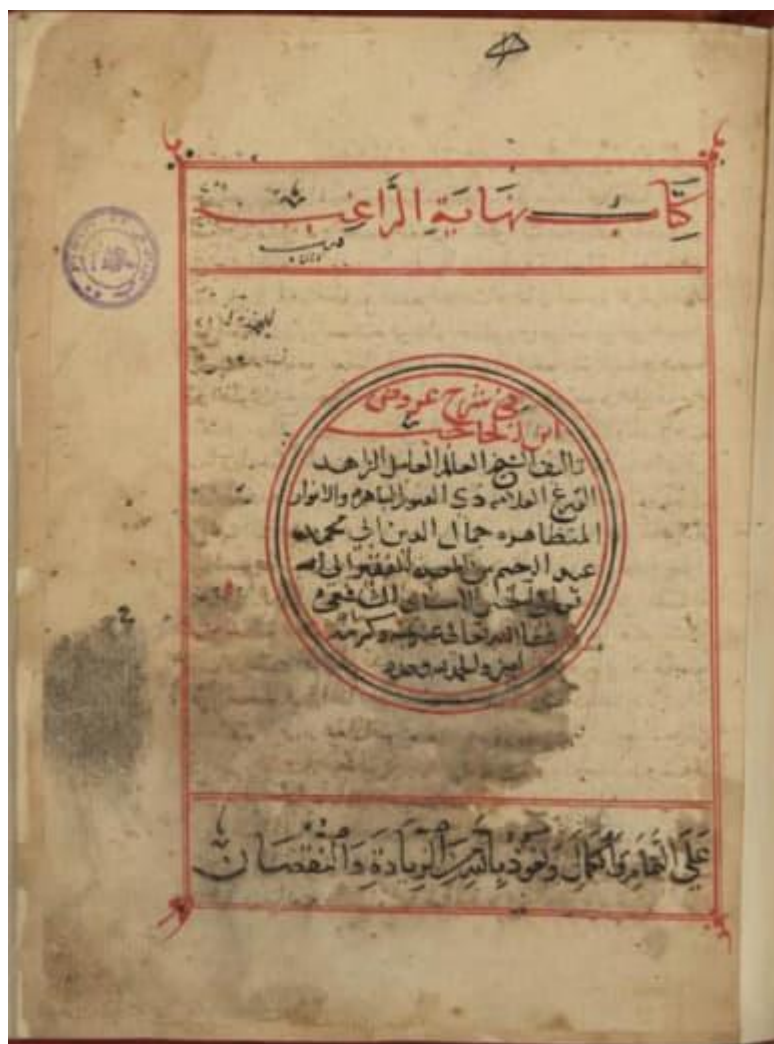 كِتَاب نهايَةِ الرَّاغِب
في شرح عروض
ابن الحاجب
تاليف الشيخ العالم العامل الزاهد
الورع العلامة ذي العلوم الباهره والانوار
المتظاهره جمال الدين ابي محمد
عبد الرحيم بن الحسن الفقير الى الله
الاسناي الشافعي
الله تعالى عنه وكرمه
امين والحمد لله وحده
عَلَى التمَامِ وَالكمَالِ وَنَعُوذ بِاللهِ مِنَ الزِيَادَةِ وَالنقصَان